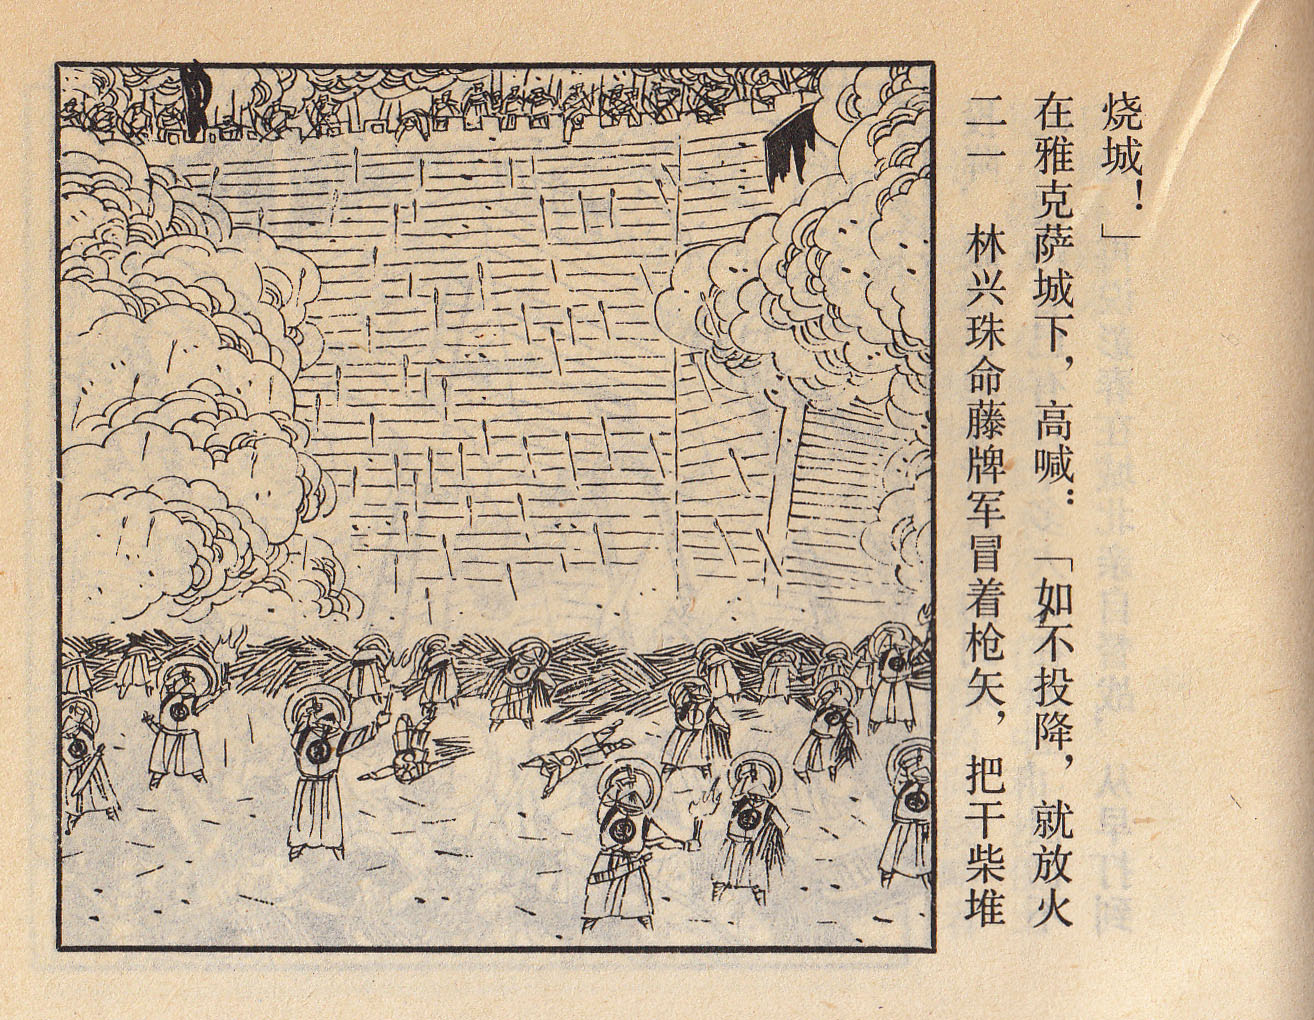 二一 林兴珠命藤牌军冒着枪矢，把干柴堆
在雅克萨城下，高喊：「如不投降，就放火
烧城！」